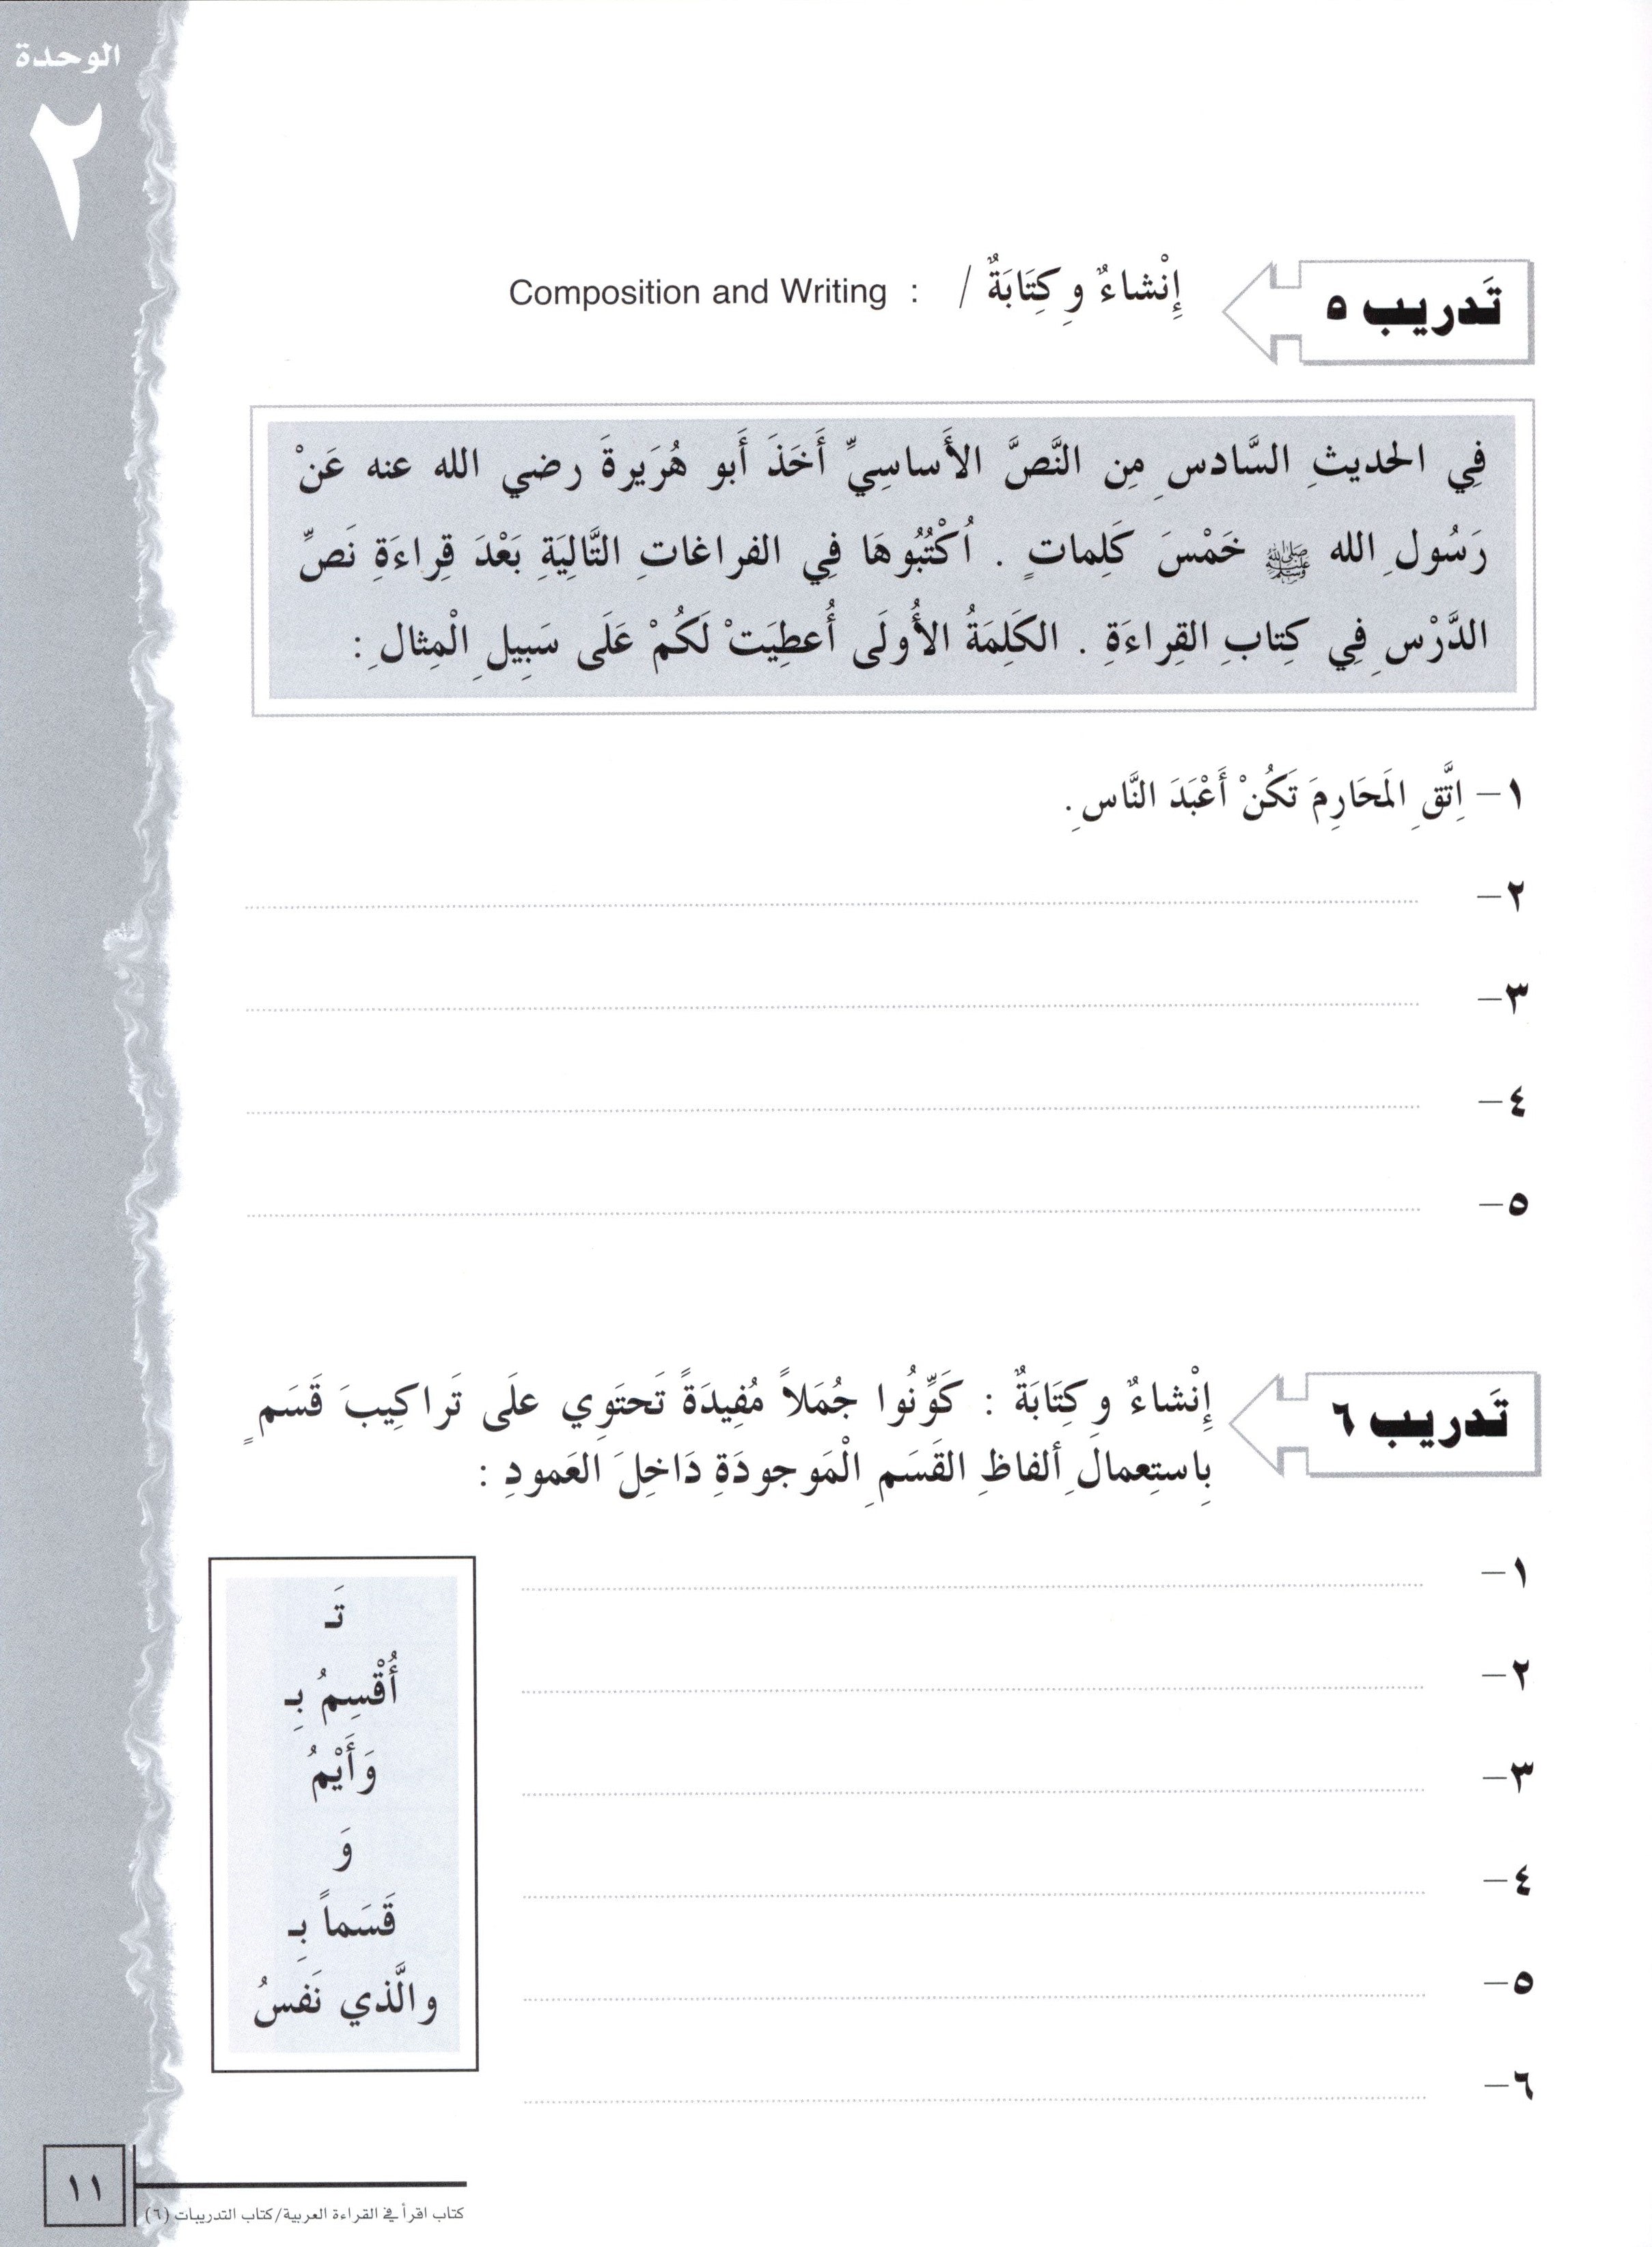 الوحدة
٢
تَدريب ٥
إِنْشاءٌ وِكِتَابَةٌ / Composition and Writing :
فِي الحديثِ السَّادسِ مِن النَّصَّ الأَساسِيِّ أَخَذَ أَبو هُرَيرةَ رضي الله عنه عَنْ
رَسُولِ الله ﷺ خَمْسَ كَلِماتٍ . اُكْتُبُوهَا فِي الفراغاتِ التَّالِيَةِ بَعْدَ قِراءَةِ نَصِّ
الدَّرْسِ فِي كِتابِ القِراءَةِ . الكَلِمَةُ الأُولَى أُعطِيَتْ لَكُمْ عَلَى سَبِيلِ الْمِثالِ :
١– اِتَّقِ المَحَارِمَ تَكُنْ أَعْبَدَ النَّاسِ .
٢–
٣–
٤–
٥–
تَدريب ٦
إِنْشاءٌ وِكِتَابَةٌ : كَوِّنُوا جُمَلاً مُفِيدَةً تَحتَوِي علَى تَراكِيبَ قَسَمٍ
بِاستِعمالِ ألفاظِ القَسَمِ الْمَوجودَةِ دَاخِلَ العَمودِ :
١–
٢–
٣–
٤–
٥–
٦–
تَـ
أُقْسِمُ بِـ
وَأَيْمُ
وَ
قَسَماً بِـ
والَّذي نَفسُ
١١
كتاب اقرأ في القراءة العربية/كتاب التدريبات (٦)